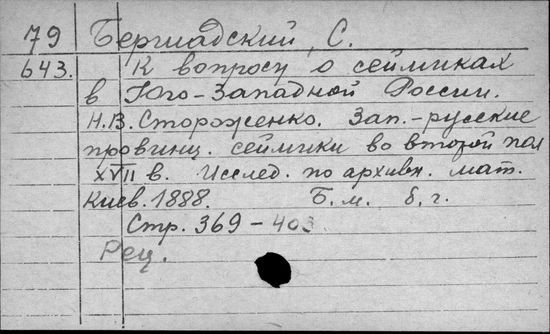 79 Бершадский, С.
643. К вопросу о сеймиках
в Юго-Западной России.
Н.В. Стороженко. Зап.-русские
провинц. сеймики во второй пол
XVII в. Исслед. по архивн. мат.
Киев. 1888. Б. м. б. г.
Стр. 369-403
Рец.